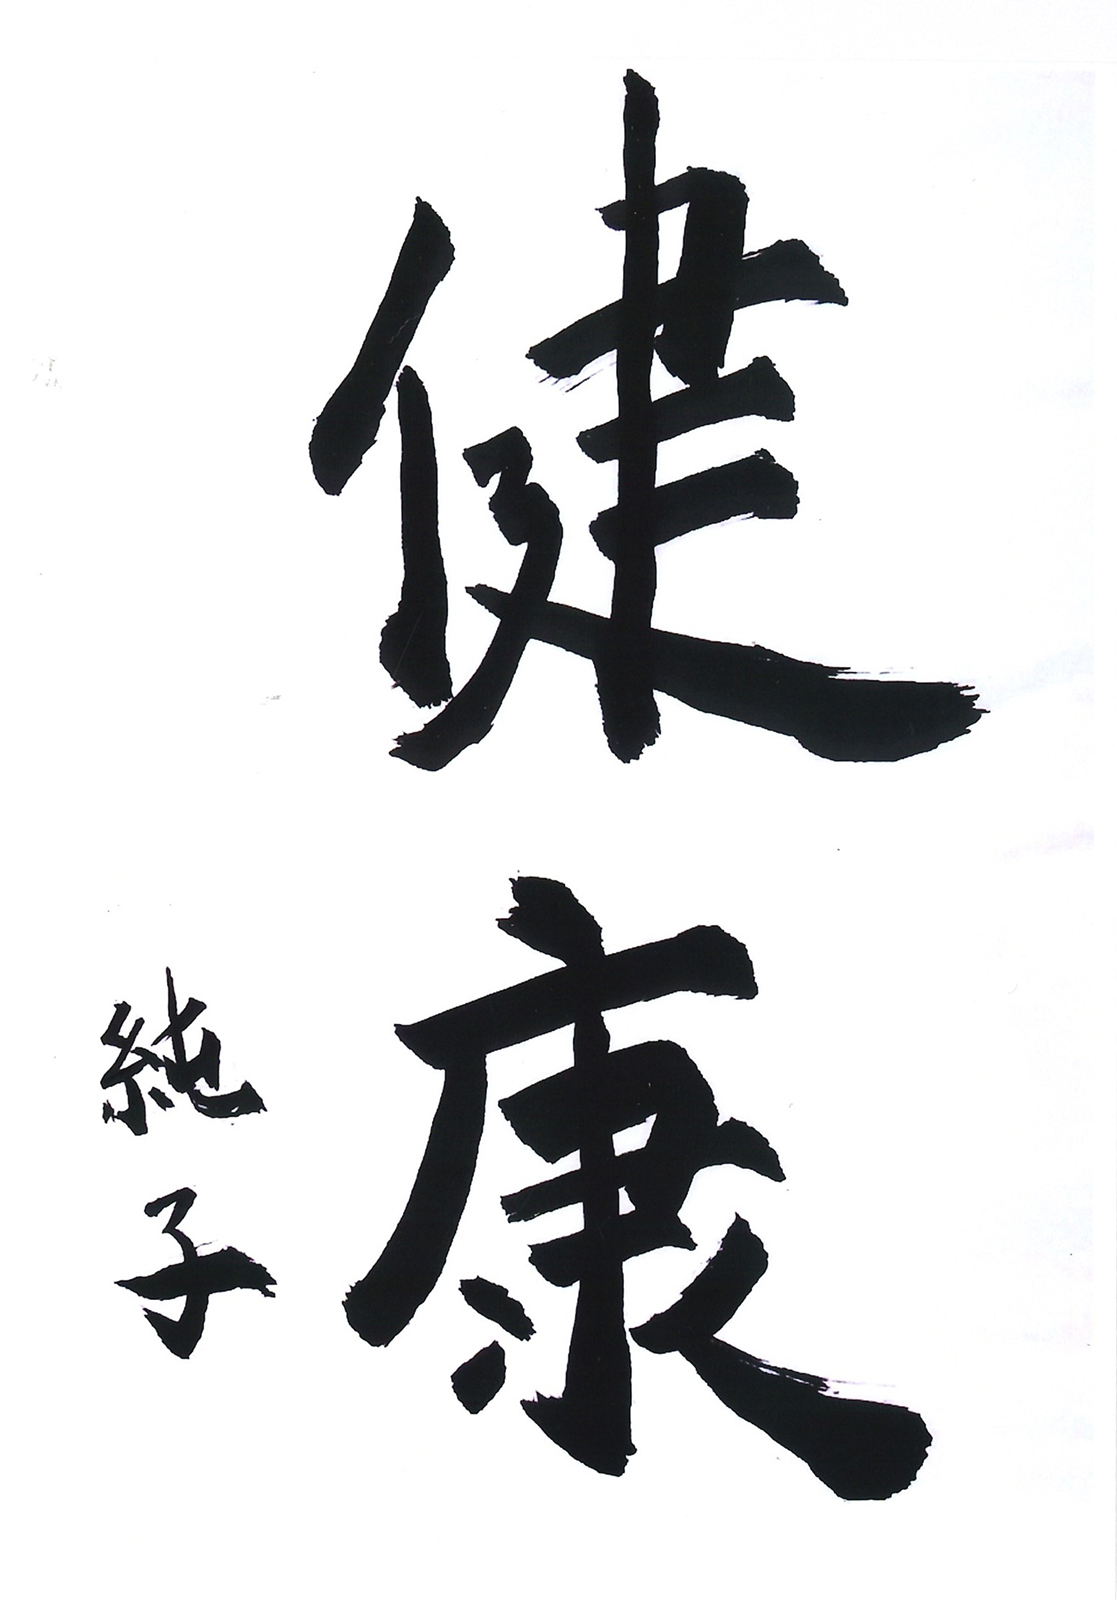 健康
純子